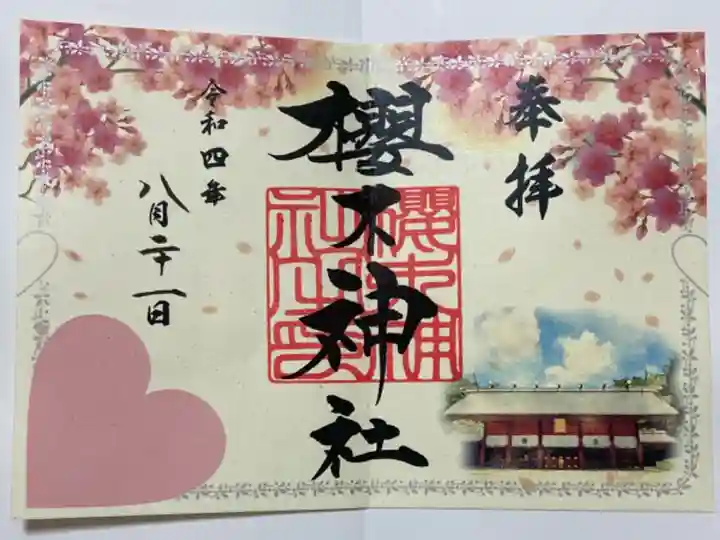 奉拝
櫻木神社
櫻木神社之印
令和四年
八月二十一日